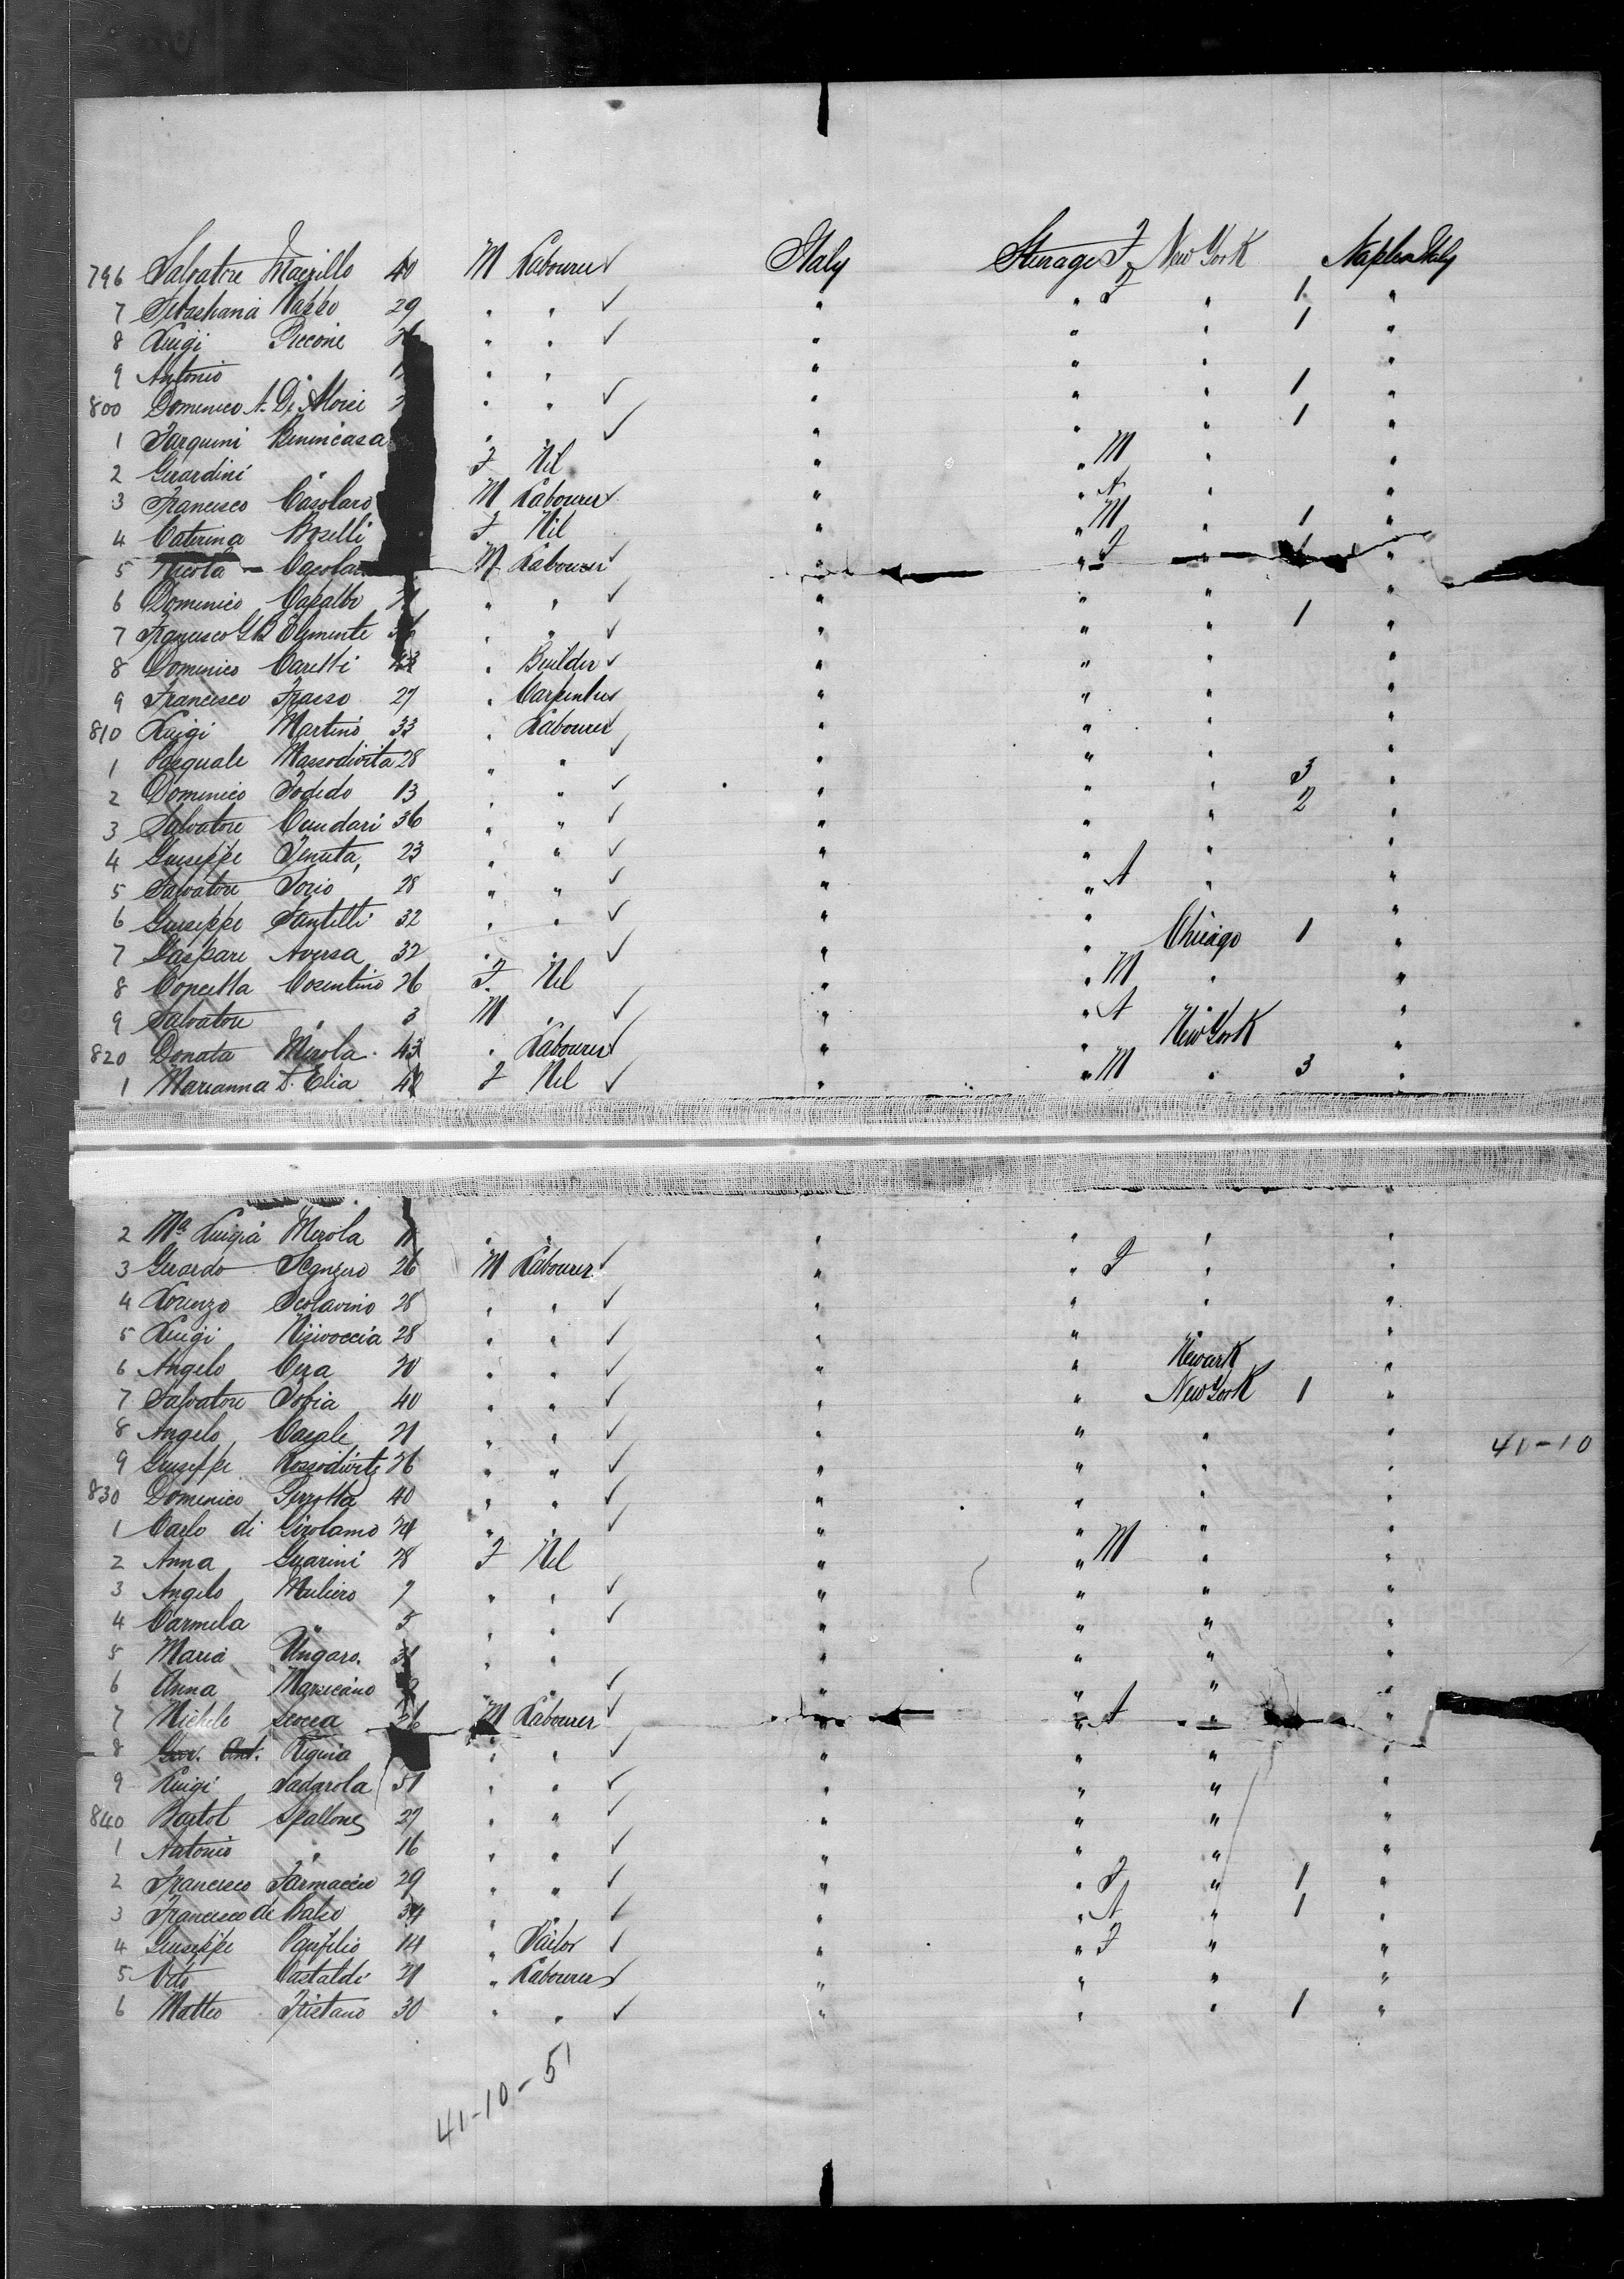 796 Salvatore Mazzillo 40 M Labourer ✓ Italy Steerage F New York Naples Italy
7 Sebastiana Nappo 29 " " ✓ " " F " 1 "
8 Luigi Piccone " " ✓ " " " 1 "
9 Antonio " " " " " " "
800 Domenico A. Di " " ✓ " " " 1 "
1 Tarquini Benincasa " " ✓ " " " 1 "
2 Gerardini " F Nil " " M " "
3 Francesco Casolaro M Labourer ✓ " " A " "
4 Caterina Boselli F Nil " " M " 1 "
5 Nicola M Labourer ✓ " " F " "
6 Domenico Casalbi " " ✓ " " " "
7 Francesco G.B. Clemente 36 " " ✓ " " " 1 "
8 Domenico Caretti 43 " Builder ✓ " " " "
9 Francesco Frasso 27 " Carpenter " " " "
810 Luigi Martino 33 " Labourer " " " "
1 Pasquale Massodivita 28 " " ✓ " " " "
2 Domenico Todedo 13 " " ✓ " " " 3 "
3 Salvatore Cundari 36 " " ✓ " " " 2 "
4 Giuseppe Tenuta, 23 " " ✓ " " " "
5 Salvatore Iorio 28 " " ✓ " " A " "
6 Giuseppe Santelli 32 " " ✓ " " "
7 Gaspare Aversa 32 " " ✓ " " Chicago 1 "
8 Concetta Cosentino 26 F Nil " " M " "
9 Salvatore " 3 M " ✓ " " A " "
820 Donata Merola 43 " Labourer ✓ " " New York "
1 Marianna D. Elia 42 F Nil ✓ " " M " 3 "
2 Ma Luigia Merola 11 " " " " " "
3 Gerardo 26 M Labourer ✓ " " F " "
4 Lorenzo Scolavino 28 " " ✓ " " " "
5 Luigi Nisivoccia 28 " " ✓ " " " "
6 Angelo Cera 20 " " ✓ " " Newark "
7 Salvatore Sofia 40 " " ✓ " " New York 1 "
8 Angelo Casale 21 " " ✓ " " " "
41-10
9 Giuseppe 26 " " ✓ " " " "
830 Domenico Perrotta 40 " " ✓ " " " "
1 Carlo di Girolamo 24 " " ✓ " " " "
2 Anna Guarini 28 F Nil " " M " "
3 Angelo Muliero 7 " " ✓ " " " "
4 Carmela " 5 " " ✓ " " " "
5 Maria Ungaro. " " " " " "
6 Anna Marsicano " " ✓ " " " "
7 Michele Scocca 26 M Labourer ✓ " " A " "
8 Ant. Requia " " ✓ " " " "
9 Luigi Sadarola 51 " " ✓ " " " "
840 Bartol Spallone 27 " " ✓ " " " "
1 Antonio " 16 " " ✓ " " " "
2 Francesco Farmaccio 29 " " ✓ " " F " 1 "
3 Francesco de Balso 34 " " ✓ " " A " 1 "
4 Giuseppe Panfilio 14 " Tailor ✓ " " F " "
5 Vito Castaldi 21 " Labourer ✓ " " " "
6 Matteo Tristano 30 " " ✓ " " " 1 "
41-10-51